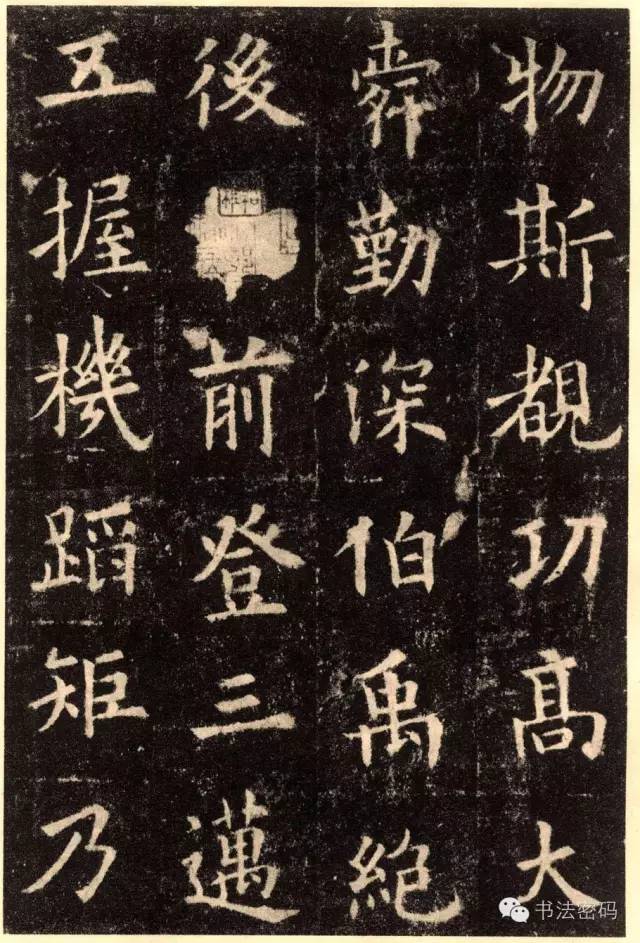 物斯覩㓛髙大
舜勤深伯禹絶
後前登三邁
五握機蹈矩乃
书法密码